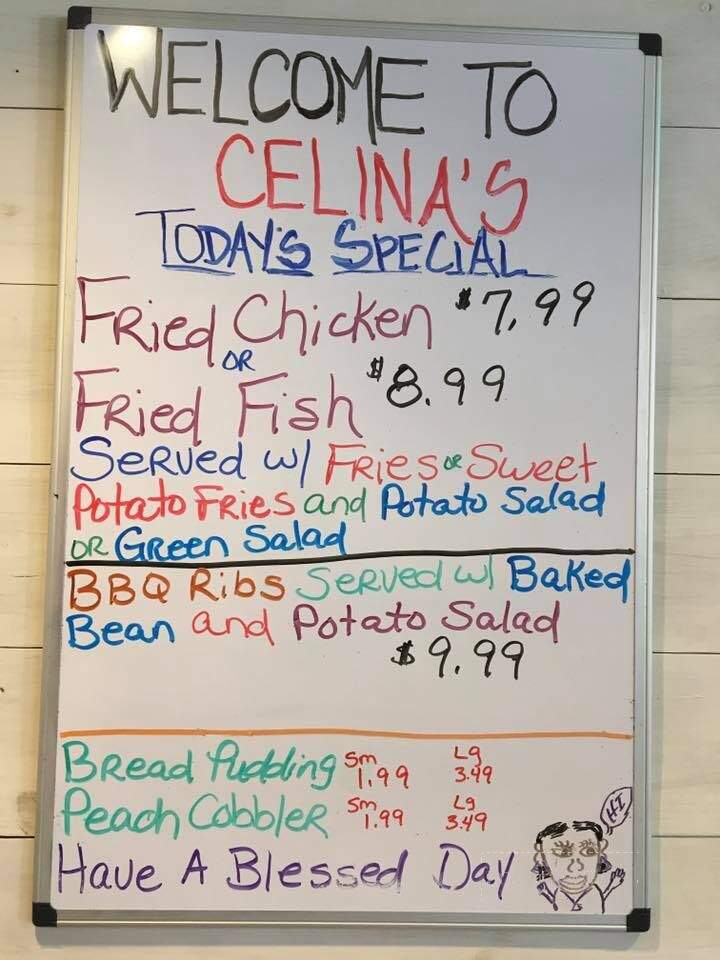 WELCOME TO
CELINA'S
TODAY'S SPECIAL
FRied Chicken $7.99
OR
FRied Fish $8.99
SeRved w/ FRies or Sweet
Potato FRies and Potato Salad
OR GReen Salad
BBQ Ribs SeRved w/ Baked
Bean and Potato Salad
$9.99
BRead Pudding Sm 1.99 Lg 3.49
Peach CobbleR Sm 1.99 Lg 3.49
Have A Blessed Day
HI